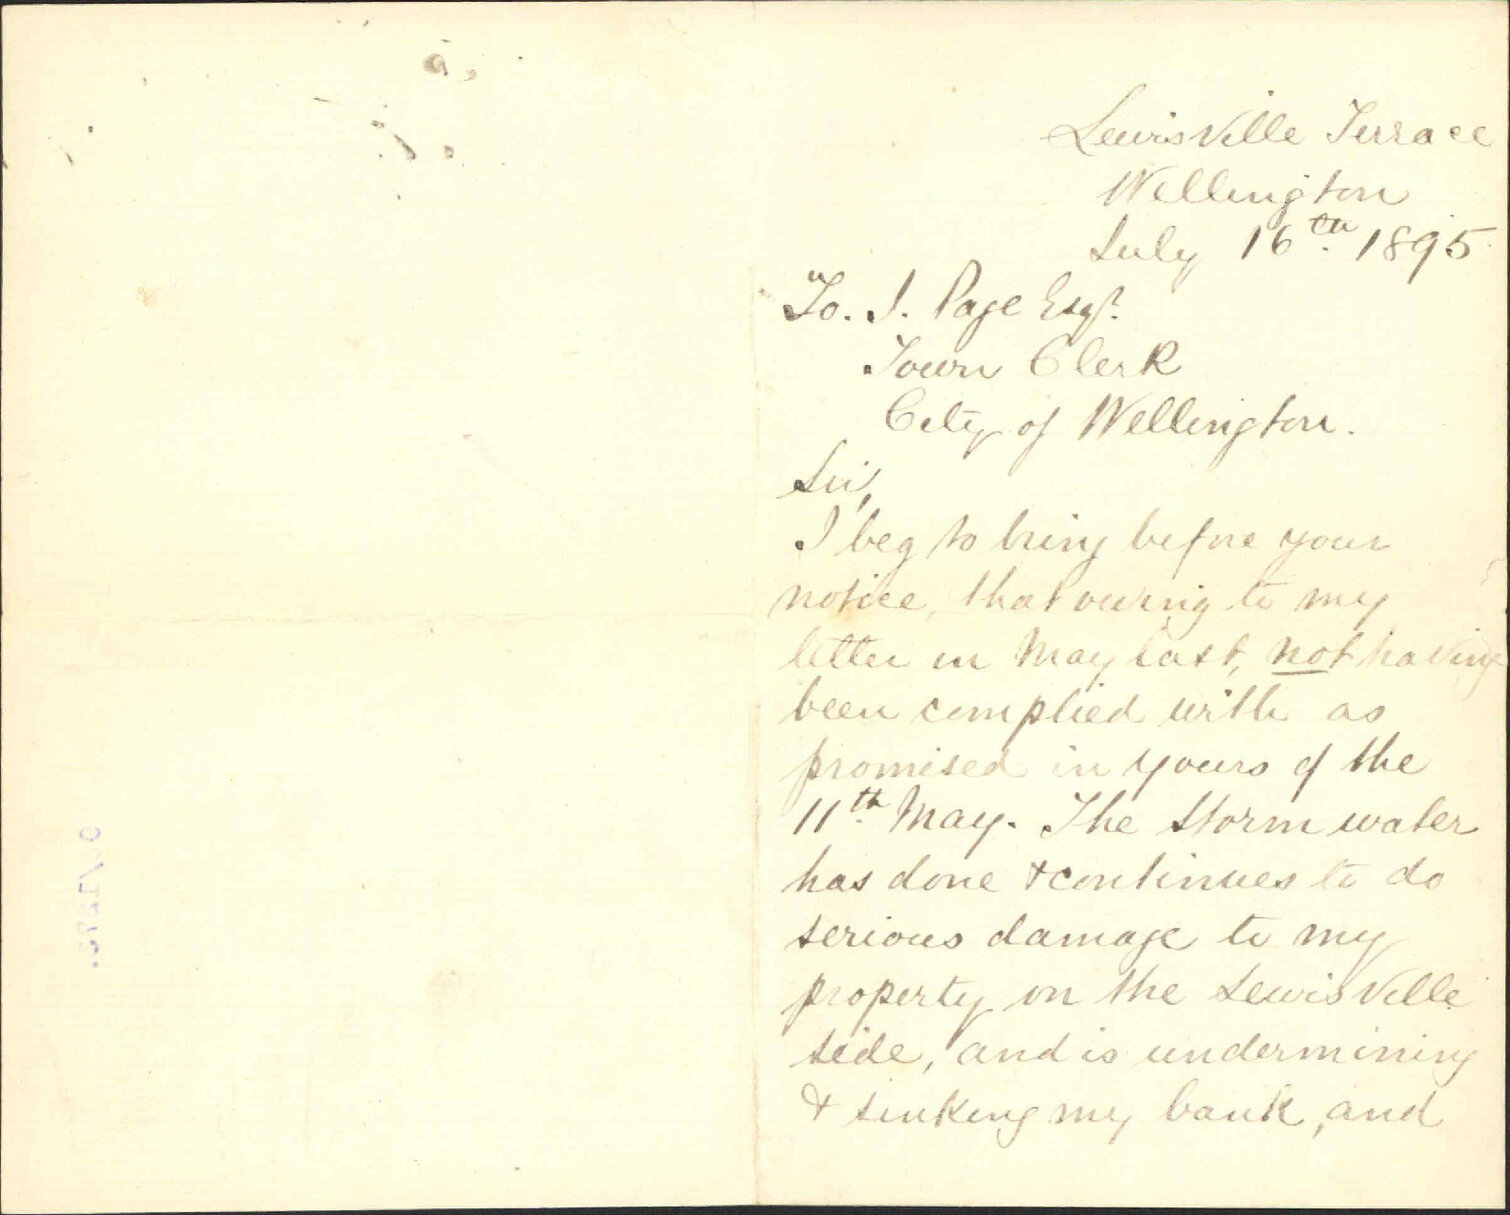 Lewisville Terrace
Wellington
July 16th. 1895
To. J. Page Esqr.
Town Clerk
City of Wellington.
Sir,
I beg to bring before your
notice, that owing to my
letter in May last, not having
been complied with as
promised in yours of the
11th. May. The Storm water
has done & continues to do
serious damage to my
property on the Lewisville
side, and is undermining
& sinking my bank, and